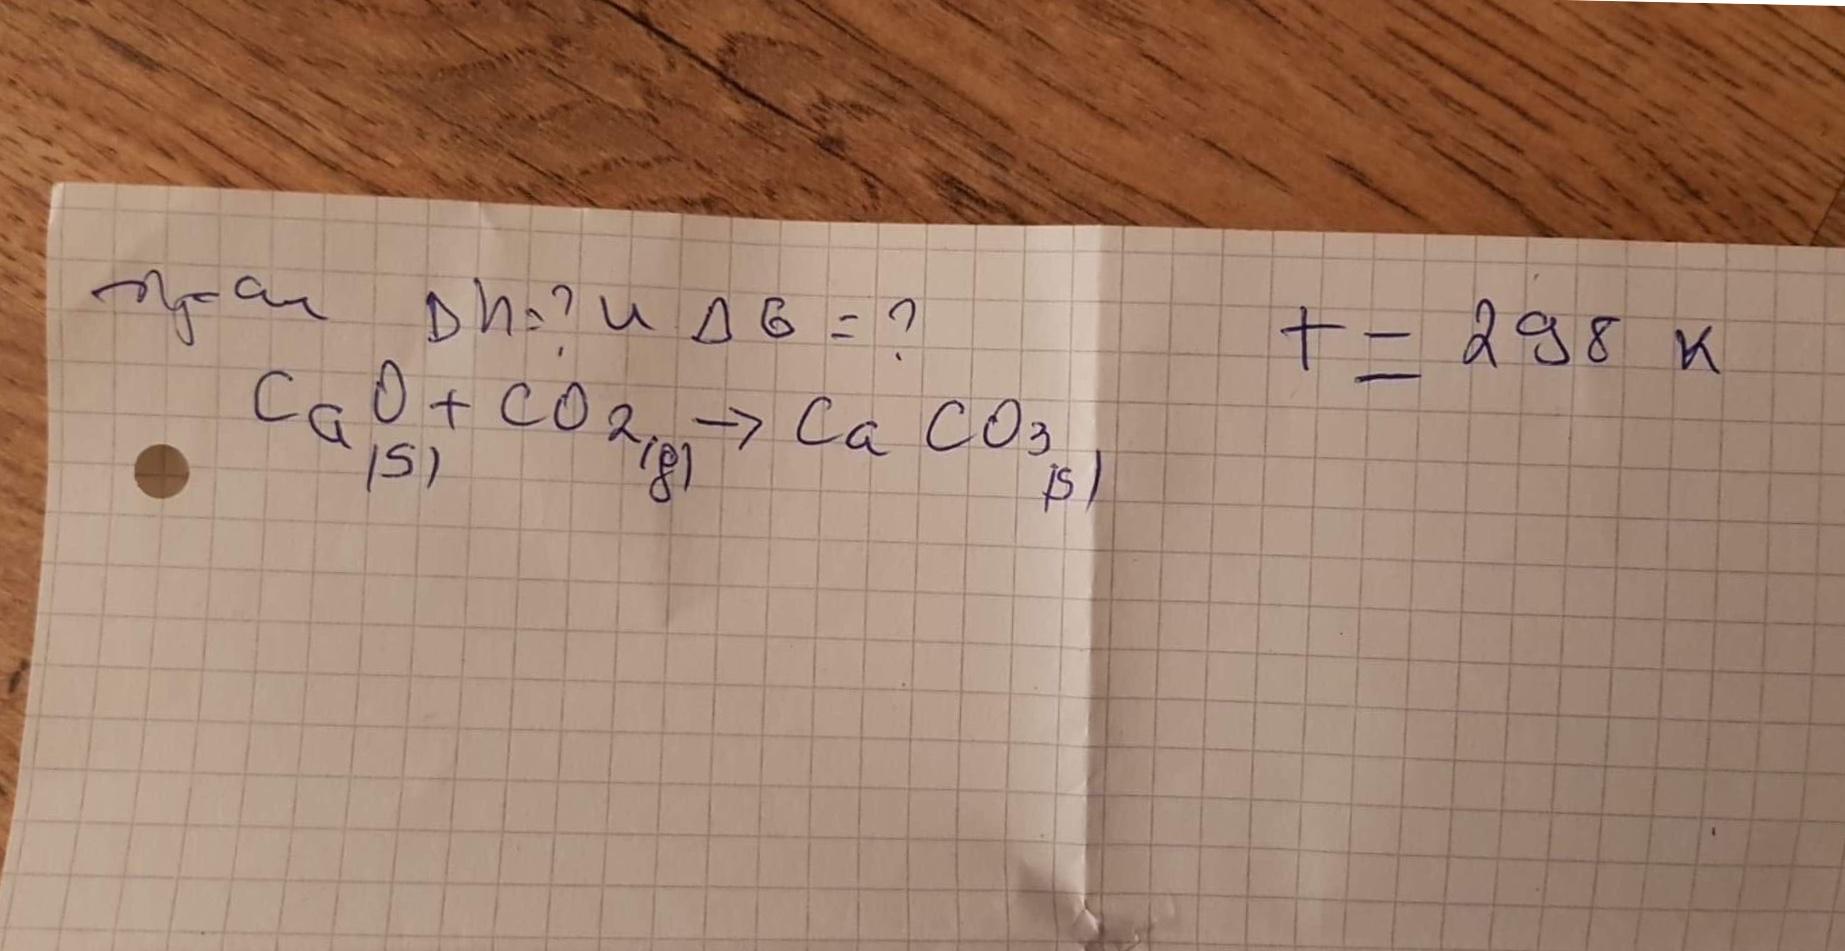 Δh=? и ΔG = ?
t = 298 K
CaO(s) + CO2(g) → CaCO3(s)